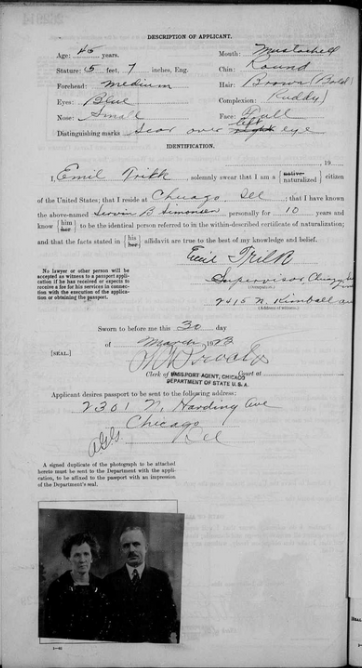 DESCRIPTION OF APPLICANT.
Age: 45 years. Mouth: Mustached
Stature: 5 feet, 7 inches, Eng. Chin: Round
Forehead: medium Hair: Brown (Bald)
Eyes: Blue Complexion: Ruddy
Nose: Small Face: Full
Distinguishing marks Scar over left right eye
IDENTIFICATION.
, 19
I, Emil Trilk, solemnly swear that I am a {native naturalized} citizen
of the United States; that I reside at Chicago Ill; that I have known
the above-named B Simonsen personally for 10 years and
know {him her} to be the identical person referred to in the within-described certificate of naturalization;
and that the facts stated in {his her} affidavit are true to the best of my knowledge and belief.
Emil Trilk
No lawyer or other person will be
accepted as witness to a passport application
if he has received or expects to
receive a fee for his services in connection
with the execution of the application
or obtaining the passport.
Supervisor, Chicago
(Occupation.)
2415 N. Kimball av
(Address of witness.)
Sworn to before me this 30 day
of March 1923
[SEAL.]
Clerk of Court at
PASSPORT AGENT, CHICAGO
DEPARTMENT OF STATE U.S.A.
Applicant desires passport to be sent to the following address:
2301 N. Harding Ave
Chicago
Ill
A signed duplicate of the photograph to be attached
hereto must be sent to the Department with the application,
to be affixed to the passport with an impression
of the Department's seal.